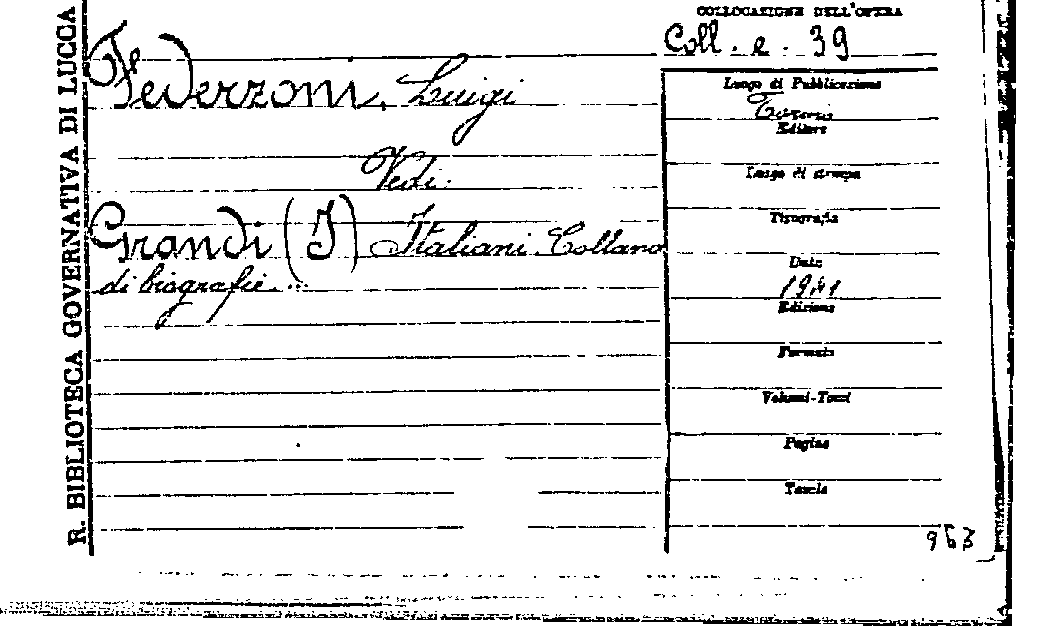 R. BIBLIOTECA GOVERNATIVA DI LUCCA
COLLOCAZIONE DELL'OPERA
Coll. e. 39
Federzoni, Luigi
Vedi:
Grandi (I) Italiani. Collana
di biografie...
Luogo di Pubblicazione
Torino
Editore
Luogo di stampa
Tipografia
Data
1941
Edizione
Formato
Volumi-Tomi
Pagine
Tavole
963